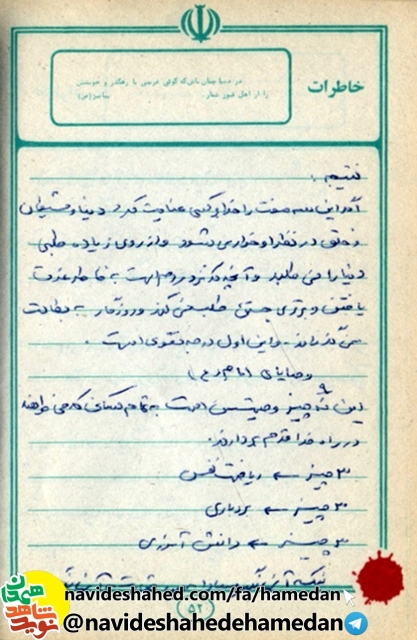 خاطرات
در دنیا چنان باش که گوئی غریبی یا رهگذر و خویشتن
را از اهل قبور شمار.
پیامبر(ص)
نتیجه:
اگر این سه صفت را خدا بکسی عنایت کند، دنیا و شیطان
و خلق در نظر او خوار می شود و از روی زیاده طلبی
دنیا را نمی طلبد و آنچه که نزد مردم است به خاطر عزت
یافتن و برتری جستن طلب نمی کند و روزگار به بطالت
نمی گذراند. و این اول درجه تقوی است.
وصایای امام (ع)
این ۹ چیز وصیت من است به تمام کسانی که می خواهند
در راه خدا قدم بردارند.
۳ چیز ← ریاضت نفس
۳ چیز ← بردباری
۳ چیز ← دانش آموزی
۵۲
navideshahed.com/fa/hamedan
@navideshahedehamedan
نوید شاهد